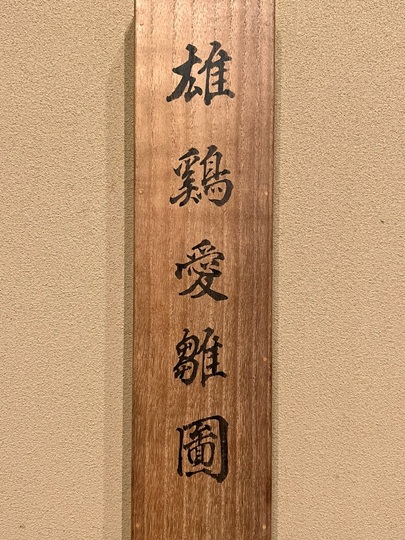 雄鷄愛雛圖